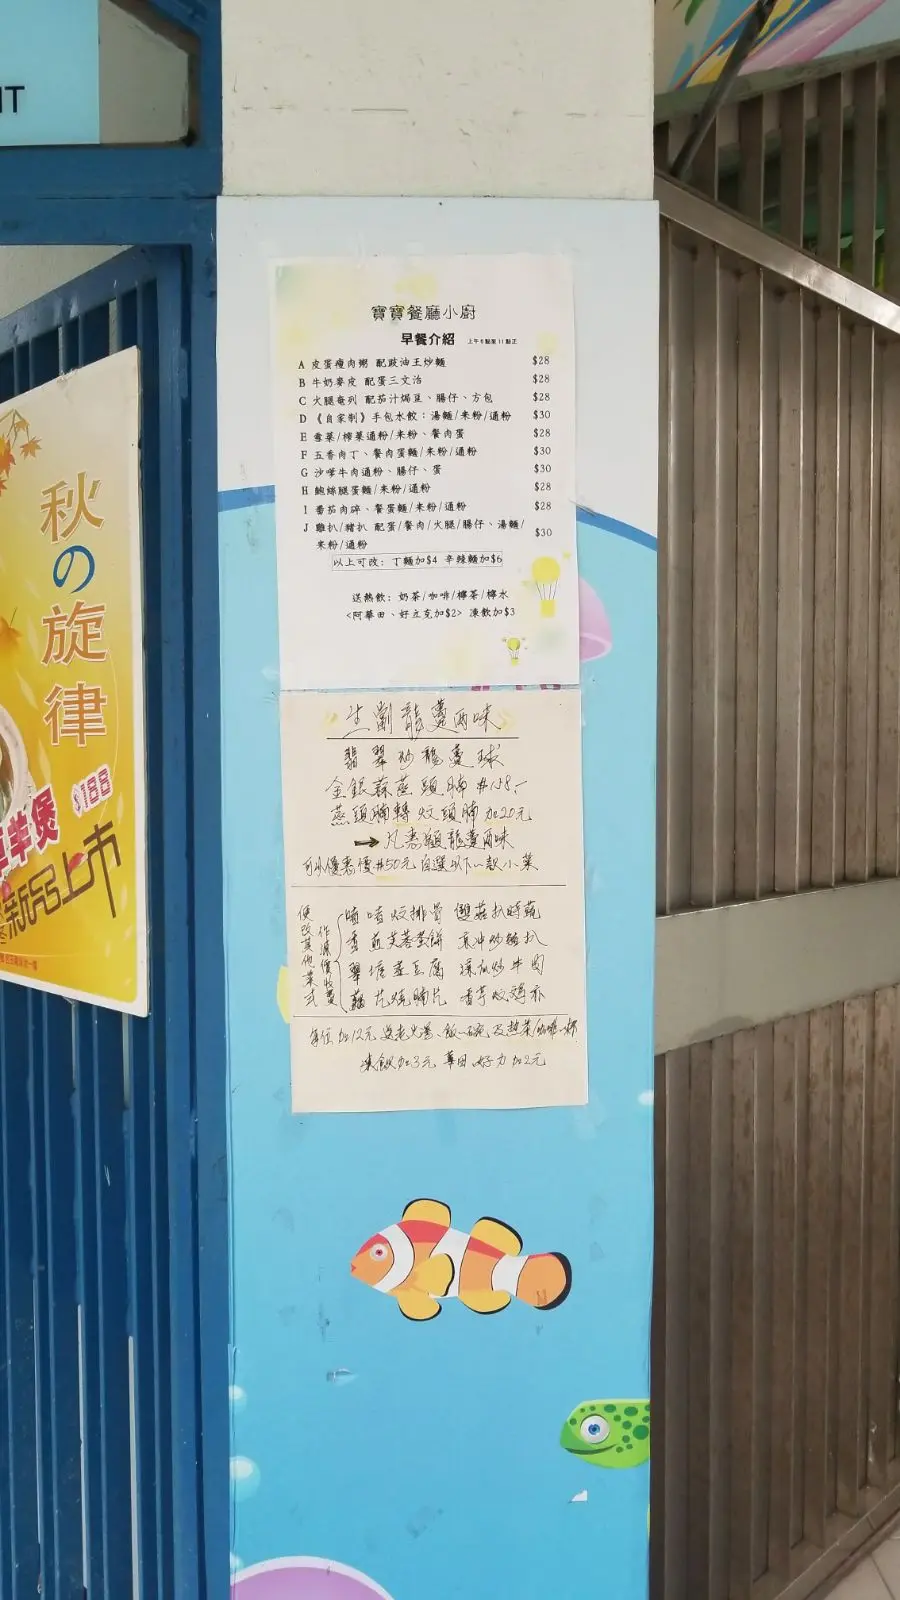 IT
秋の旋律
$188
羊煲
新品上市
寶寶餐廳小廚
早餐介紹 上午6點至11點正
A 皮蛋瘦肉粥 配豉油王炒麵 $28
B 牛奶麥皮 配蛋三文治 $28
C 火腿奄列 配茄汁焗豆、腸仔、方包 $28
D 《自家制》手包水餃：湯麵/米粉/通粉 $30
E 雪菜/榨菜通粉/米粉、餐肉蛋 $28
F 五香肉丁、餐肉蛋麵/米粉/通粉 $30
G 沙嗲牛肉通粉、腸仔、蛋 $30
H 鮑絲腿蛋麵/米粉/通粉 $28
I 番茄肉碎、餐蛋麵/米粉/通粉 $28
J 雞扒/豬扒 配蛋/餐肉/火腿/腸仔、湯麵/ $30
米粉/通粉
以上可改：丁麵加$4 辛辣麵加$6
送熱飲：奶茶/咖啡/檸茶/檸水
<阿華田、好立克加$2> 凍飲加$3
生劏龍躉兩味
翡翠炒龍躉球
金銀蒜蒸頭腩
蒸頭腩轉炆頭腩加20元
凡惠顧龍躉兩味
可以優惠價$50元自選以下一款小菜
便改其他菜式
作原價收費
啫啫炆排骨 雙菇扒時蔬
香煎芙蓉蛋餅
翠塘蒸豆腐 涼瓜炒牛肉
藕片燒腩片 香芋炆雞
每位加12元送老火湯、飯一碗及熱茶/咖啡一杯
凍飲加3元 華田 好力加2元